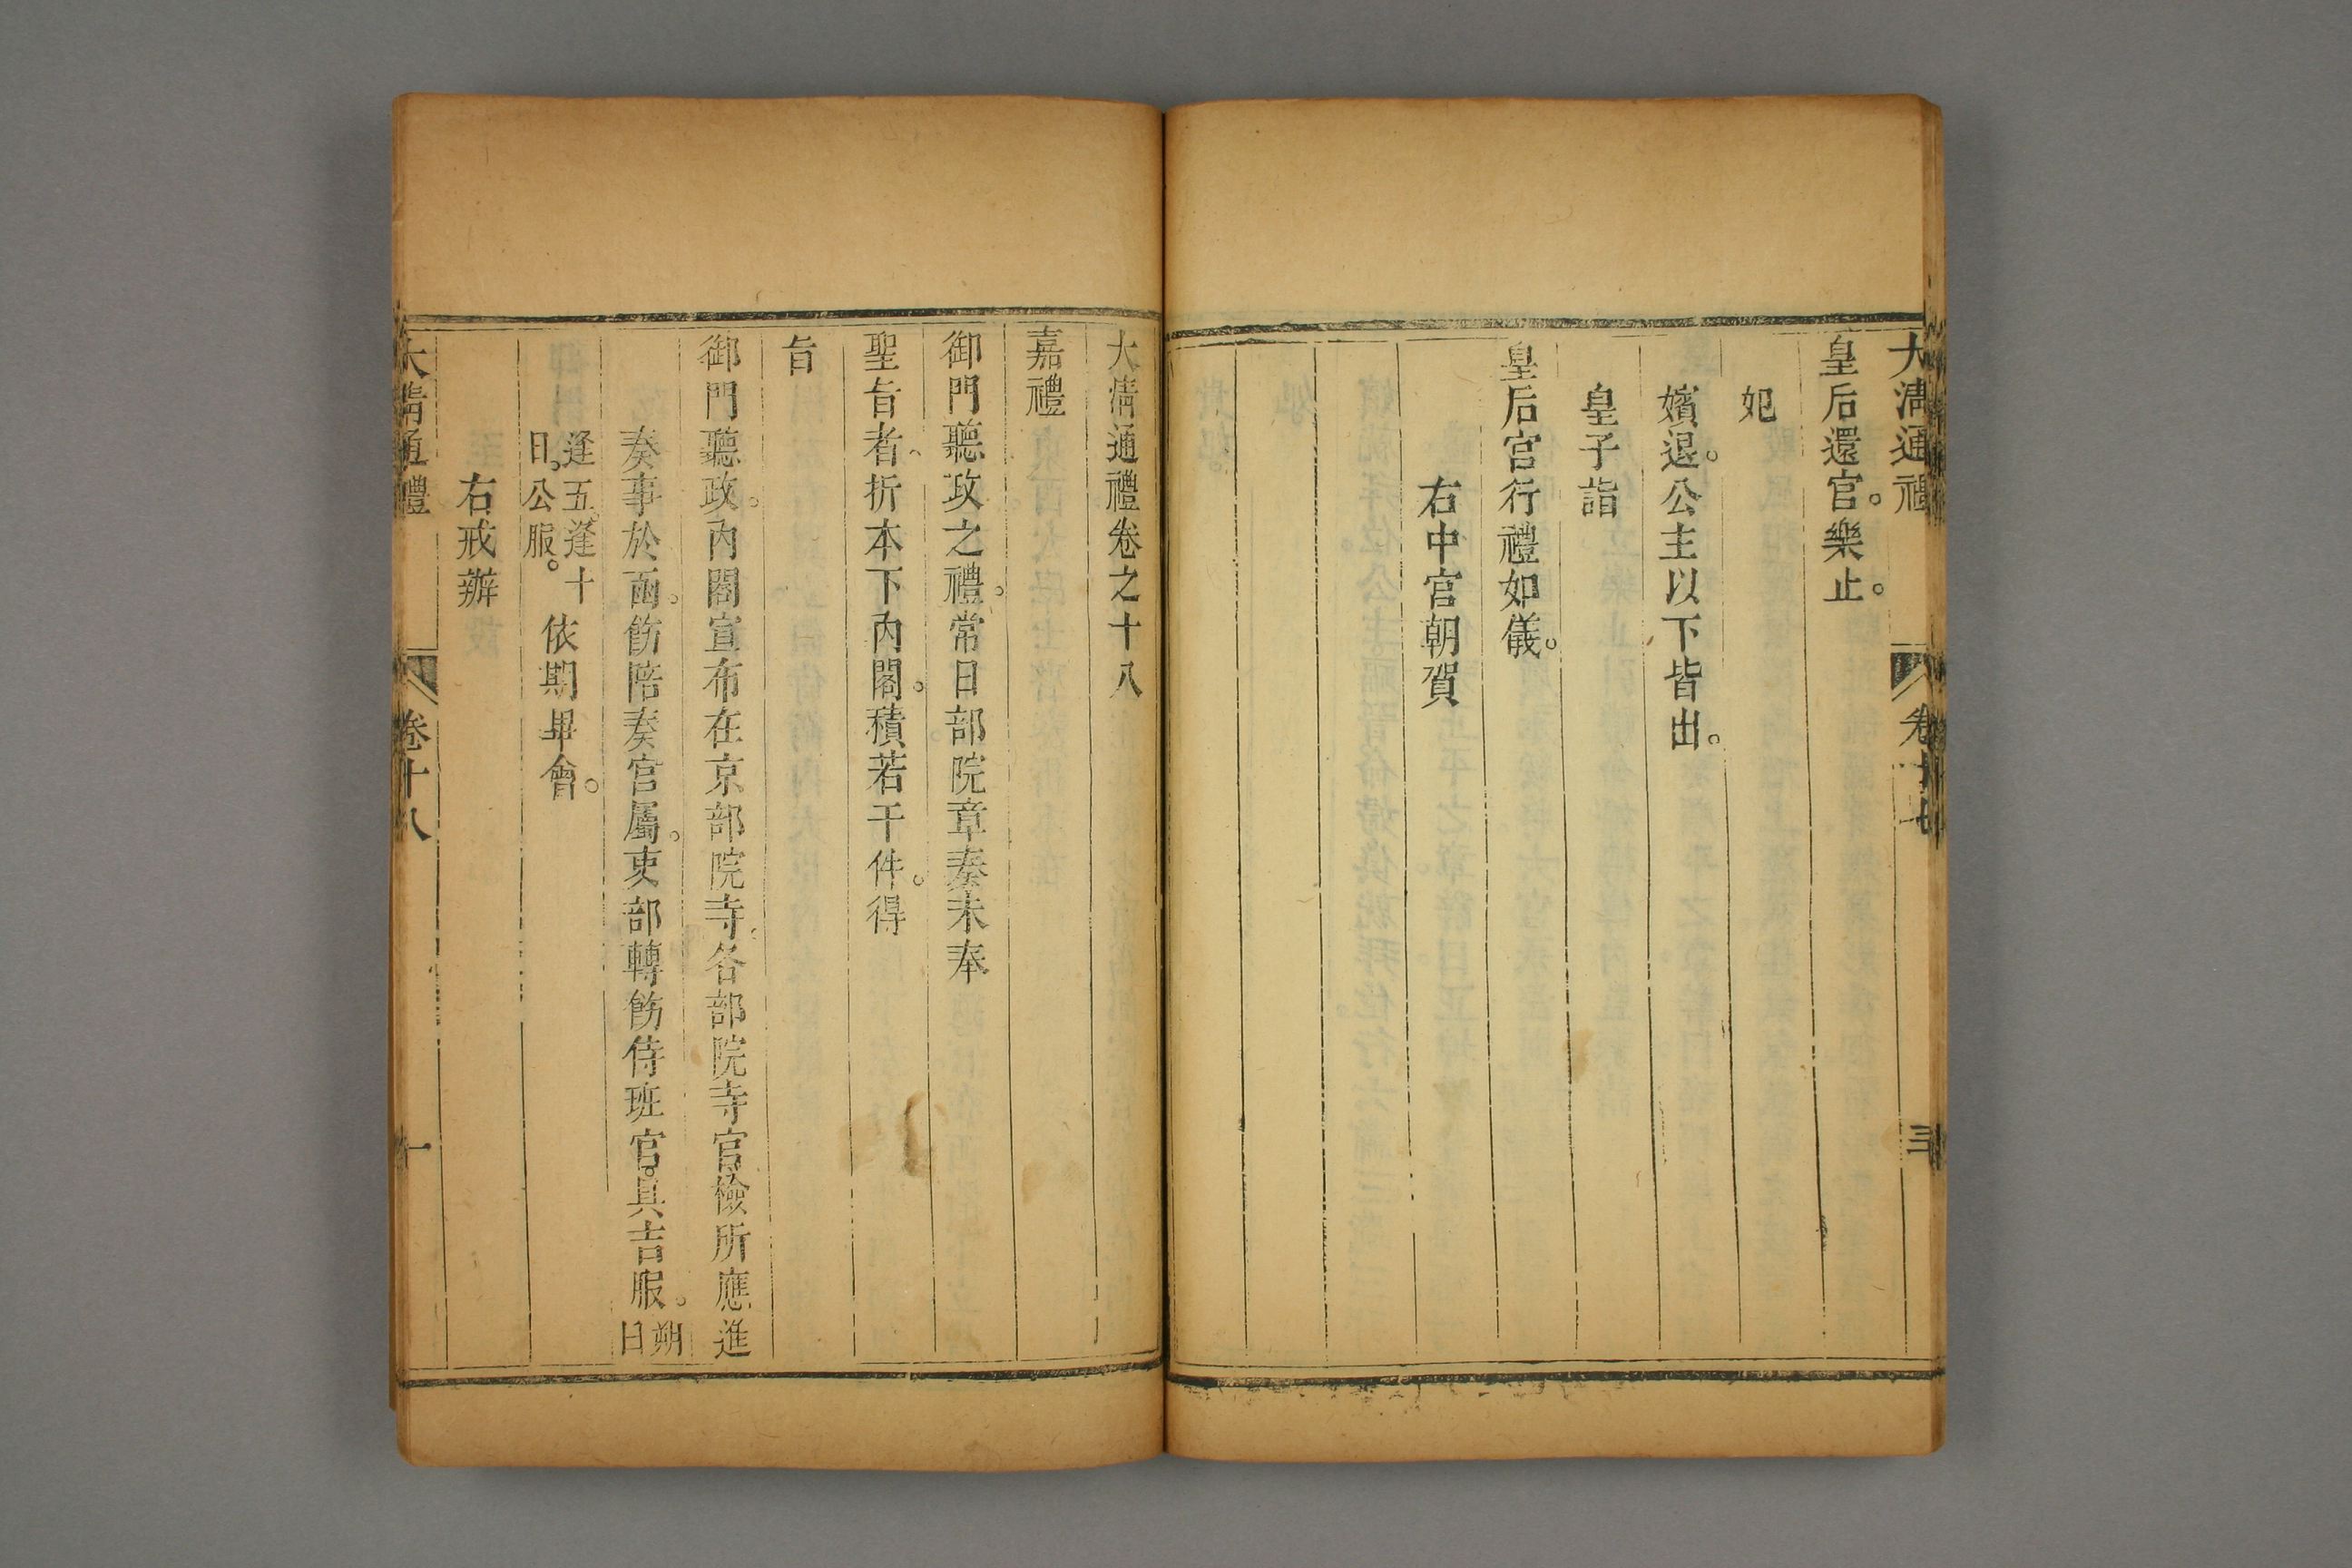 大清通禮 卷十七 三
皇后還宮。樂止。
妃
嬪退。公主以下皆出。
皇子詣
皇后宮行禮如儀。
右中宮朝賀
大清通禮卷之十八
嘉禮
御門聽政之禮。常日部院章奏未奉
聖旨者、折本下內閣。積若干件。得
旨
御門聽政。內閣宣布在京部院寺。各部院寺官檢所應進
奏事於函。飭陪奏官屬。吏部轉飭侍班官。具吉服。朔
日
逢五。逢十
日。公服。
依期畢會。
右戒辦
大清通禮 卷十八 一